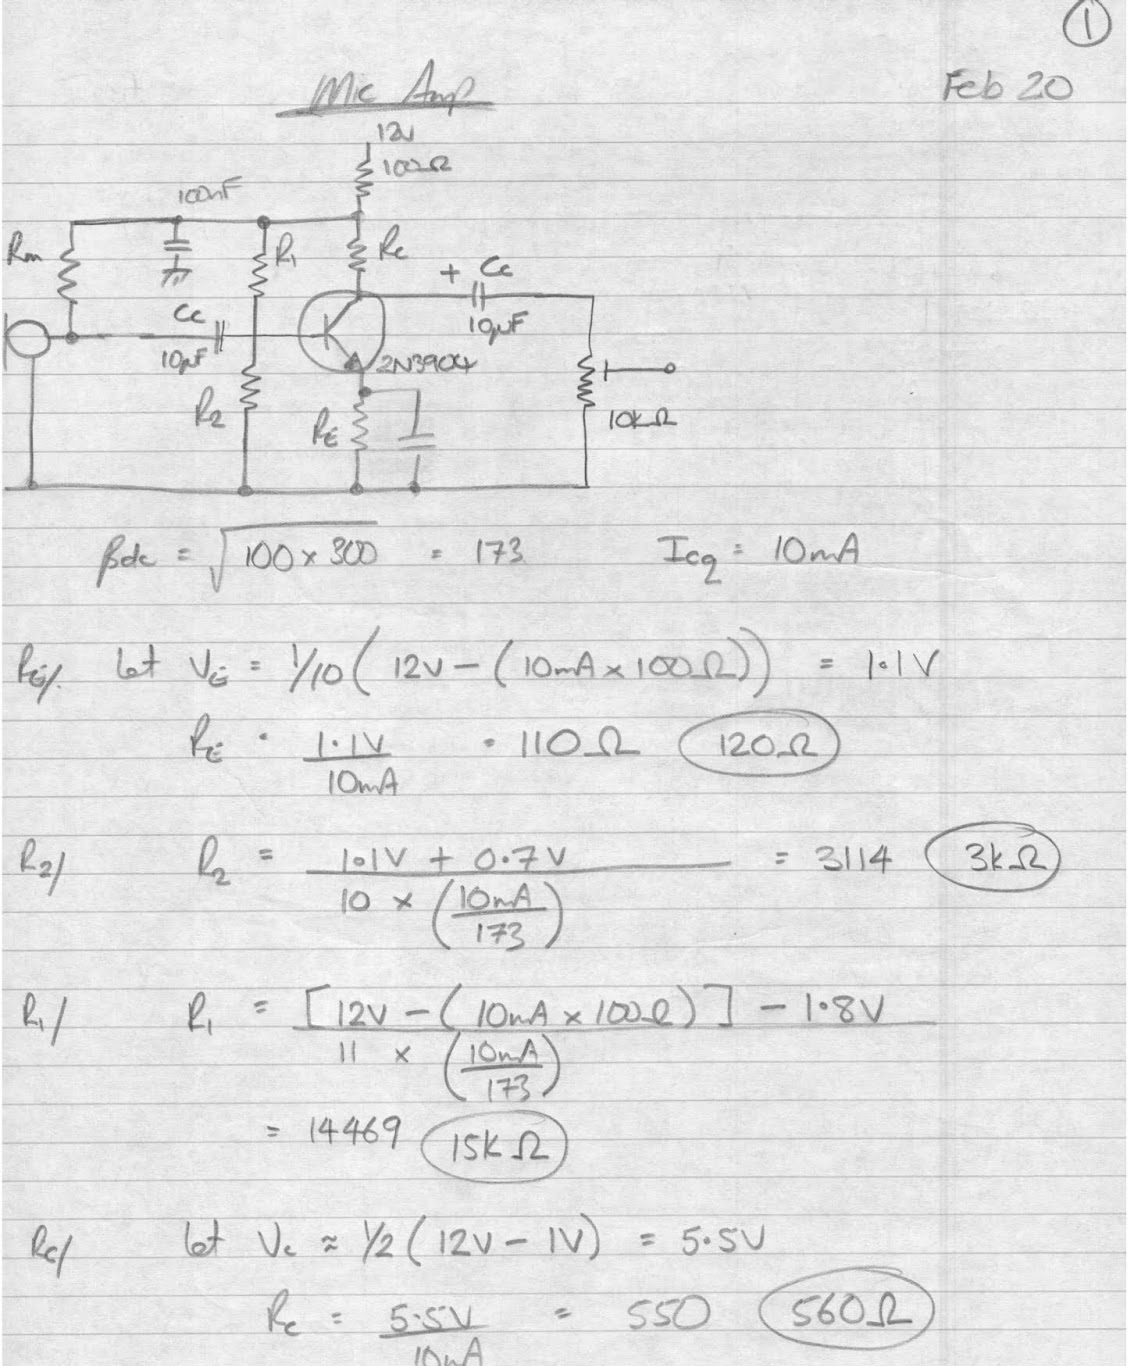 ①
Mic Amp
Feb 20
12V
100Ω
100nF
Rm
R1
Rc
+ Cc
10μF
Cc
10μF
2N3904
R2
RE
10kΩ
βdc = √(100 × 300) = 173 ICQ = 10mA
RE/. Let VE = 1/10 (12V - (10mA × 100Ω)) = 1.1V
RE = 1.1V / 10mA = 110Ω 120Ω
R2/ R2 = 1.1V + 0.7V / 10 × (10mA / 173) = 3114 3kΩ
R1/ R1 = [12V - (10mA × 100Ω)] - 1.8V / 11 × (10mA / 173)
= 14469 15kΩ
Rc/ Let Vc ≈ 1/2 (12V - 1V) = 5.5V
Rc = 5.5V / 10mA = 550 560Ω